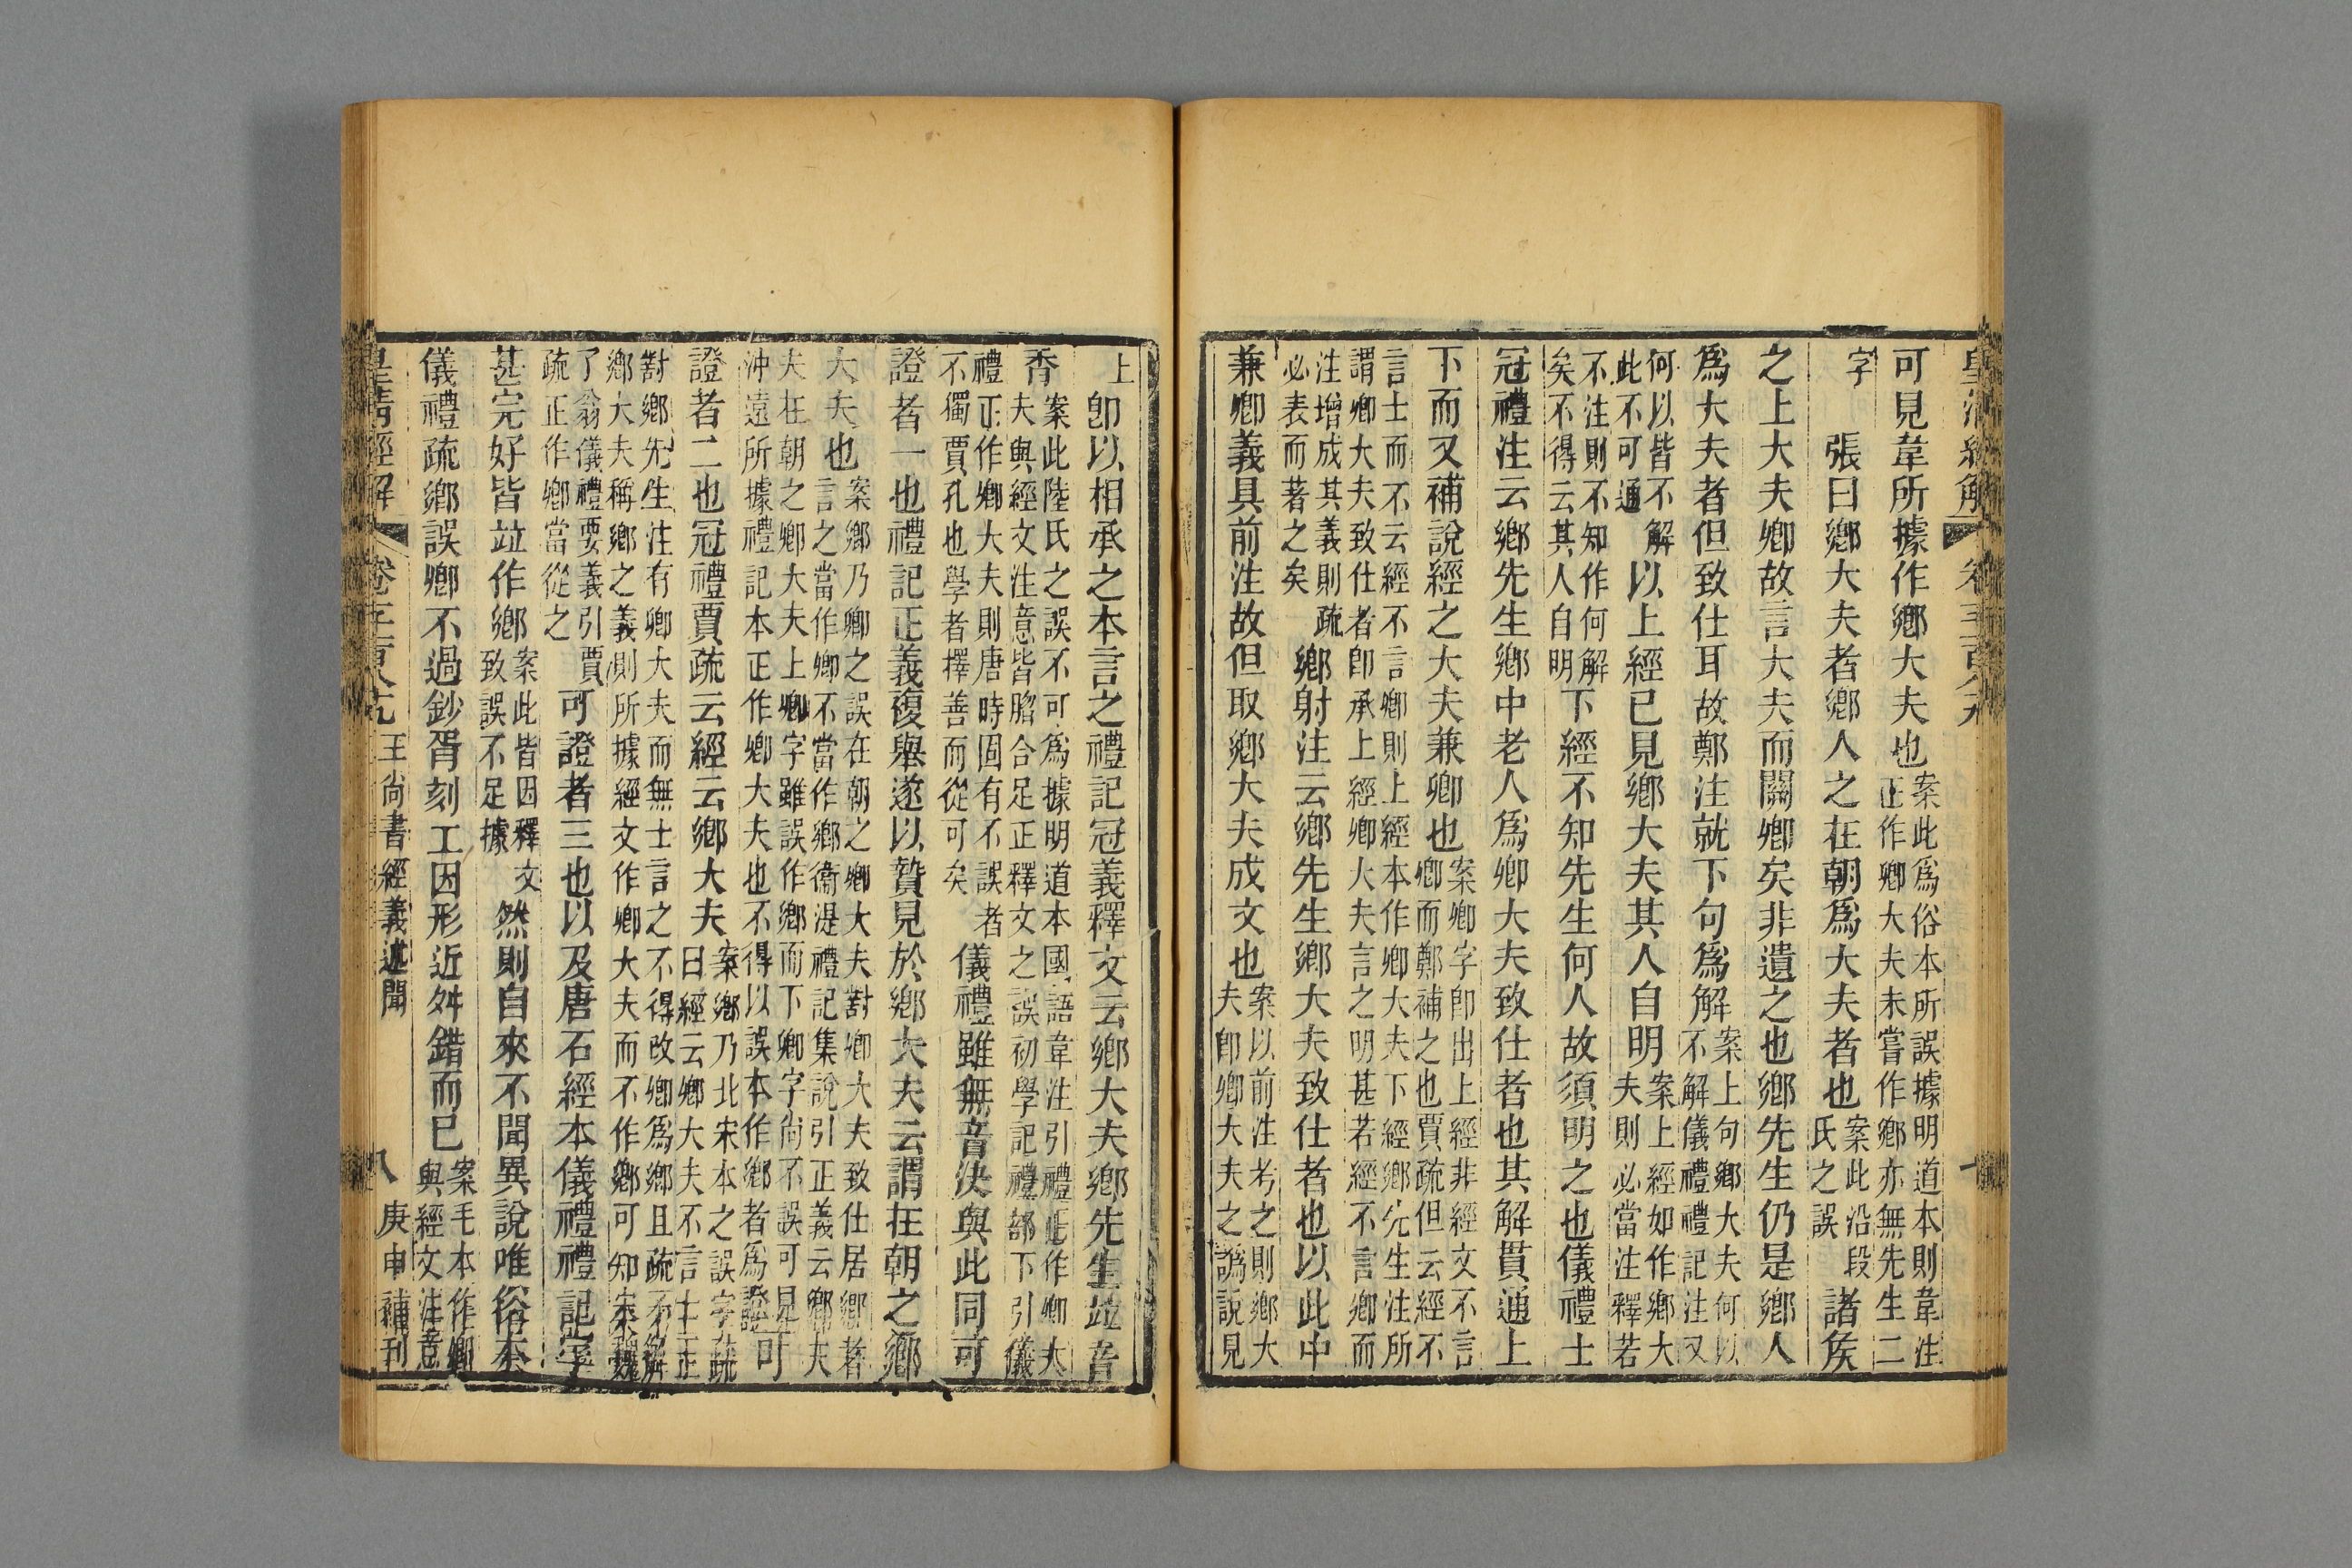 皇清經解
可見韋所據作鄉大夫也
案此爲俗本所誤據明道本則韋注
正作卿大夫未嘗作鄉亦無先生二
字
張曰鄉大夫者鄉人之在朝爲大夫者也
案此沿段
氏之誤
諸矦
之上大夫卿故言大夫而關卿矣非遺之也鄉先生仍是鄉人
爲大夫者但致仕耳故鄭注就下句爲解
案上句鄉大夫何以
不解儀禮禮記注又
何以皆不解
此不可通
以上經已見鄉大夫其人自明
案上經如作鄉大
夫則必當注釋若
不注則不知作何解
矣不得云其人自明
下經不知先生何人故須明之也儀禮士
冠禮注云鄉先生鄉中老人爲卿大夫致仕者也其解貫通上
下而又補說經之大夫兼卿也
案卿字卽出上經非經文不言
卿而鄭補之也賈疏但云經不
言士而不云經不言卿則上經本作卿大夫下經鄉先生注所
謂卿大夫致仕者卽承上經卿大夫言之明甚若經不言卿而
注增成其義則疏
必表而著之矣
鄉射注云鄉先生鄉大夫致仕者也以此中
兼卿義具前注故但取鄉大夫成文也
案以前注考之則鄉大
夫卽卿大夫之譌說見
上
卽以相承之本言之禮記冠義釋文云鄉大夫鄉先生竝音
香
案此陸氏之誤不可爲據明道本國語韋注引禮正作卿大
夫與經文注意皆脗合足正釋文之誤初學記禮部下引儀
禮正作卿大夫則唐時固有不誤者
不獨賈孔也學者擇善而從可矣
儀禮雖無音決與此同可
證者一也禮記正義復舉遂以贄見於鄉大夫云謂在朝之鄉
大夫也
案鄉乃卿之誤在朝之卿大夫對卿大夫致仕居鄉者
言之當作卿不當作鄉衞湜禮記集說引正義云鄉夫
夫在朝之卿大夫上卿字雖誤作鄉而下卿字尚不誤可見
沖遠所據禮記本正作卿大夫也不得以誤本作鄉者爲證
可
證者二也冠禮賈疏云經云鄉大夫
案鄉乃北宋本之誤字疏
曰經云鄉大夫不言士正
對鄉先生注有卿大夫而無士言之不得改卿爲鄉且疏不解
鄉大夫稱鄉之義則所據經文作卿大夫而不作鄉可知宋魏
了翁儀禮要義引賈
疏正作卿當從之
可證者三也以及唐石經本儀禮禮記字
甚完好皆竝作鄉
案此皆因釋文
致誤不足據
然則自來不聞異說唯俗本
儀禮疏鄉誤卿不過鈔胥刻工因形近舛錯而已
案毛本作卿
與經文注意
皇清經解 王尚書經義述聞 八 庚申補刊